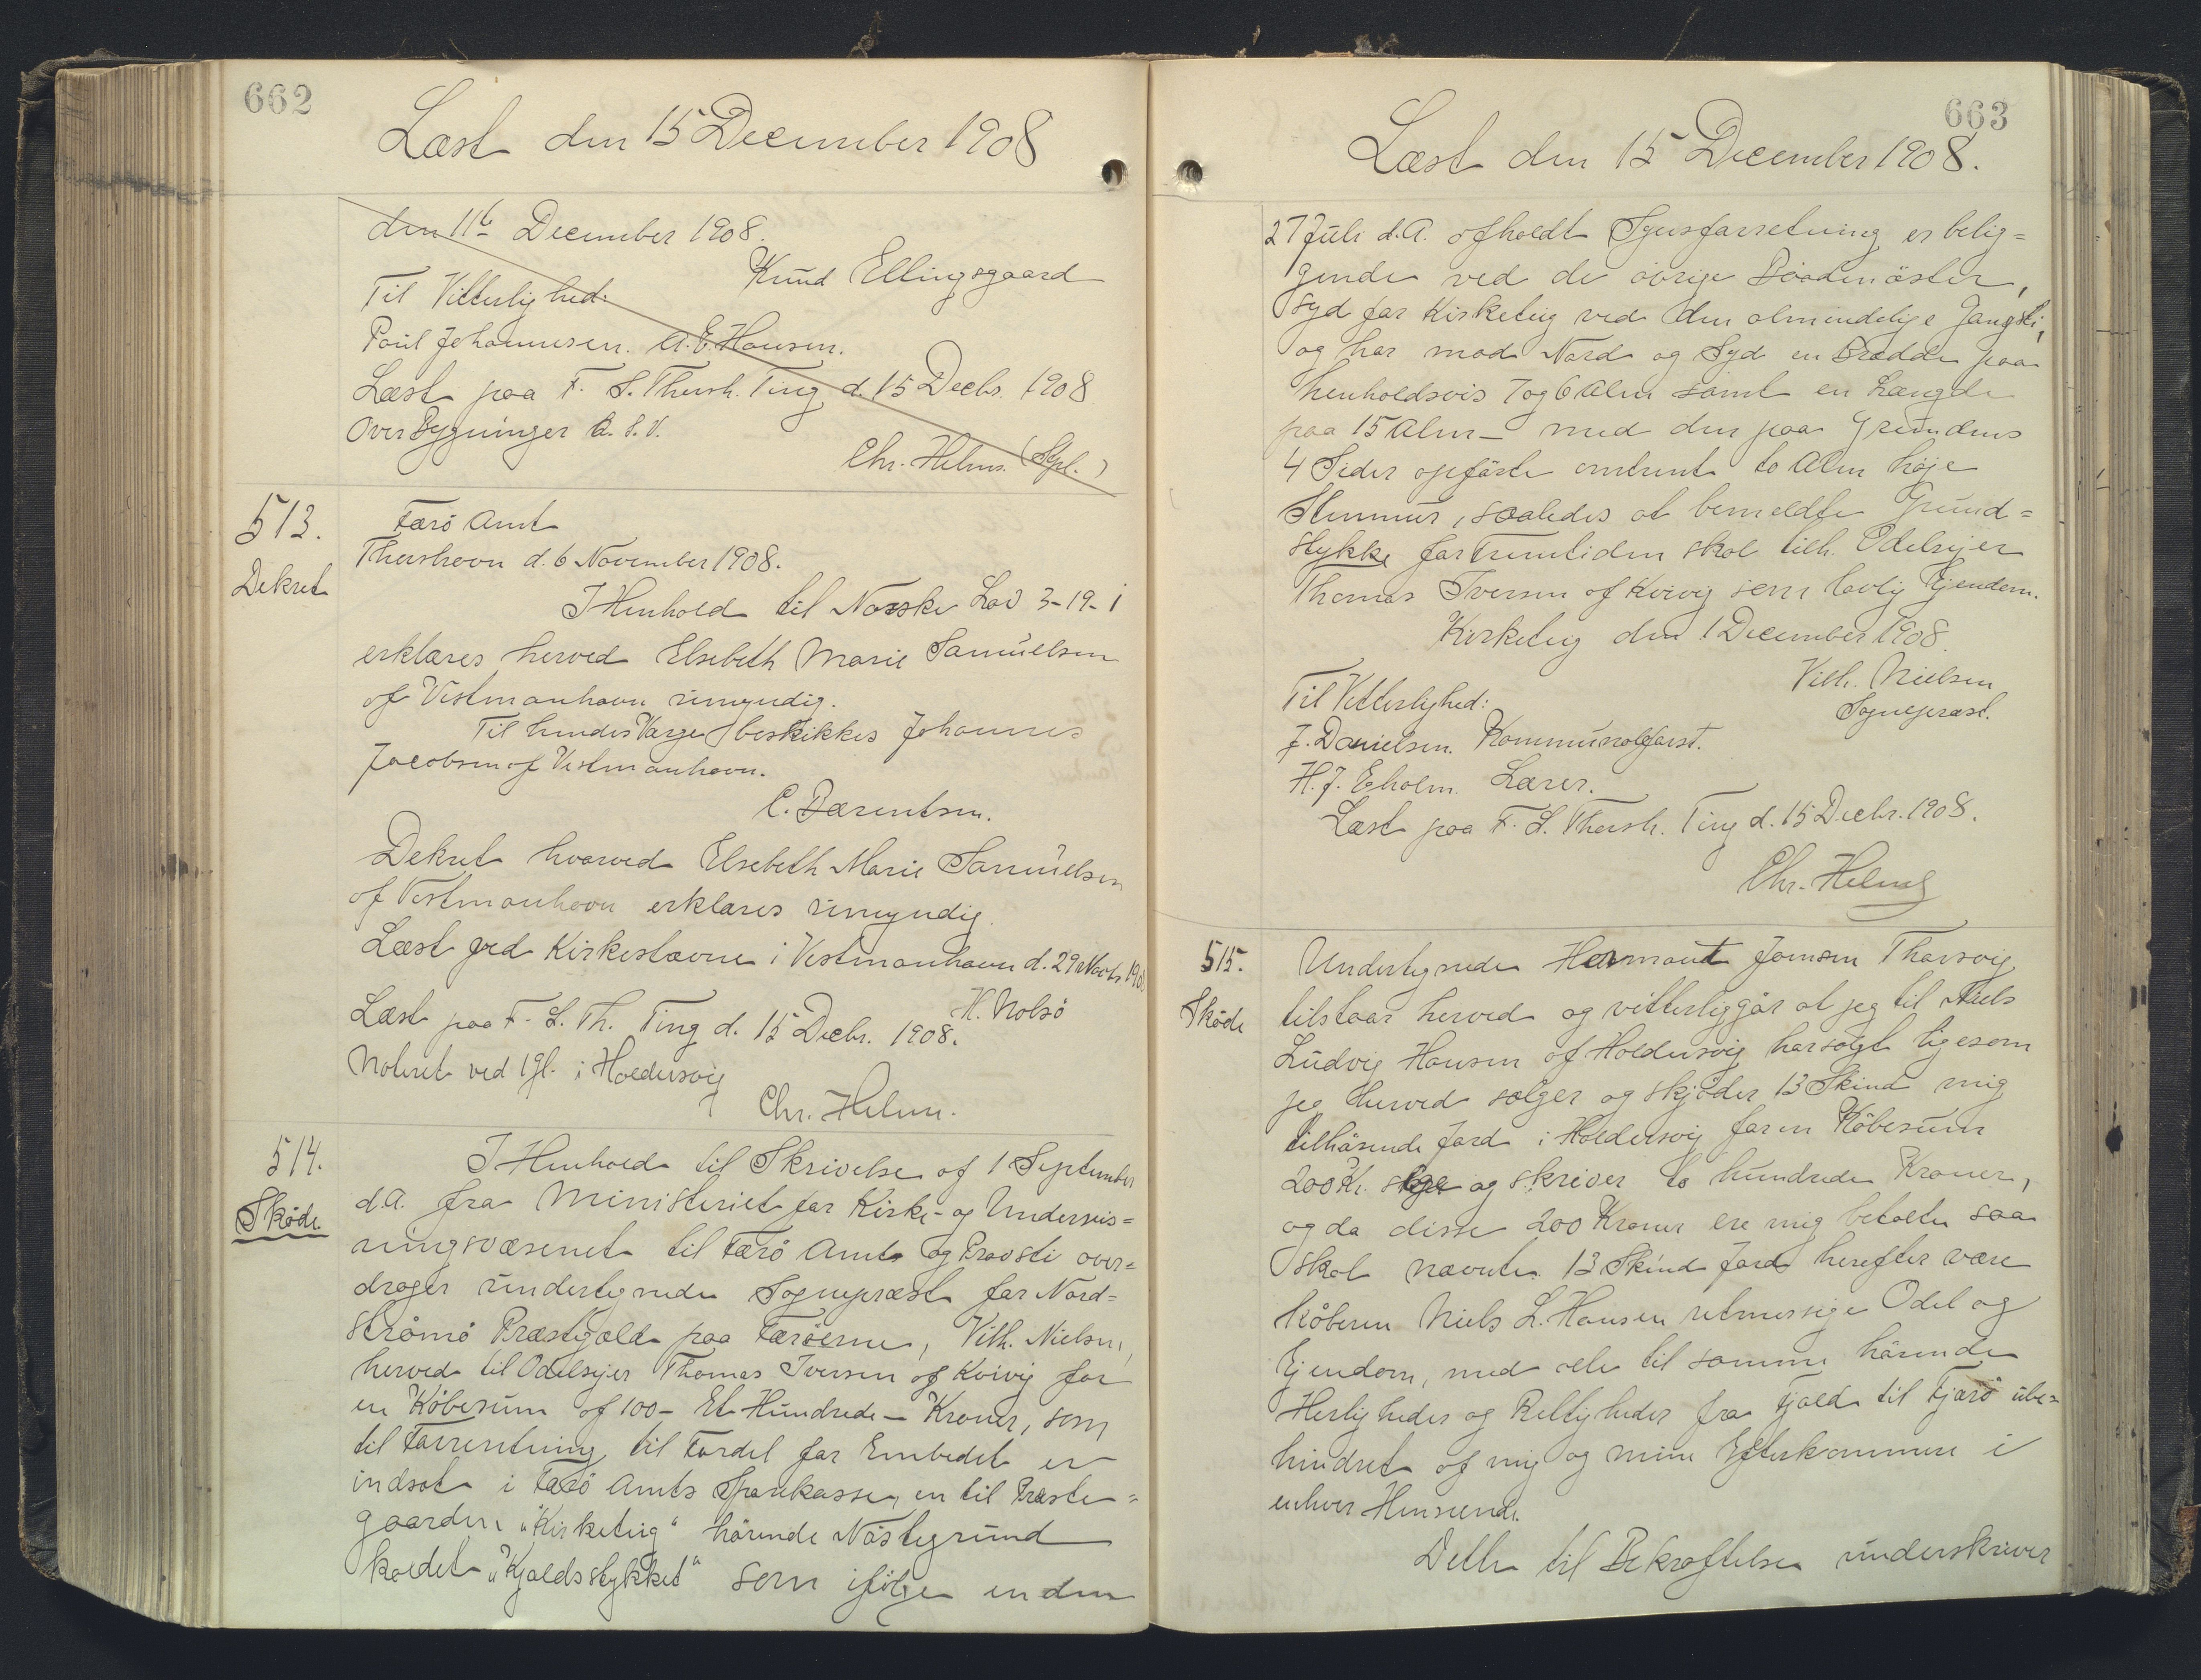 662
Læst den 15 December 1908
den 11te December 1908.
Knud Ellingsgaard
Til Vitterlighed:
Poul Johannesen. A. E. Hansen.
Læst paa F. S. Thorsh. Ting d. 15 Decbr. 1908
Over Bygninger A. S. V.
Chr. Helms. (Spl.)
513.
Dekret
Færö Amt
Thorshavn d. 6 November 1908.
I Henhold til Norske Lov 3-19-1
erklæres herved Elsebeth Marie Samuelsen
af Vestmanhavn umyndig.
Til hendes Værge beskikkes Johannes
Jacobsen af Vestmanhavn.
C. Bærentsen.
Dekret hvorved Elsebeth Marie Samuelsen
af Vestmanhavn erklæres umyndig.
Læst ved Kirkestævne i Vestmanhavn d. 29 Novbr. 1908
H. Nolsö
Læst paa F. S. Th. Ting d. 15 Decbr. 1908.
Noteret ved 1 Gl. i Haldersvig
Chr. Helms.
514.
Sköde.
I Henhold til Skrivelse af 1 September
d.A. fra Ministeriet for Kirke- og Undervis=
ningsvæsenet til Færö Amt og Provsti over=
drager undertegnede Sognepræst for Nord=
strömö Præstegjæld paa Færöerne, Vilh. Nielsen,
herved til Odelsejer Thomas Iversen af Kvivig for
en Köbesum af 100 - Et Hundrede - Kroner, som
til Forrentning til Fordel for Embedet er
indsat i Færö Amts Sparekasse, en til Præste=
gaarden "Kirketeig" hörende Nöstegrund
kaldet "Kjaldsstykket" som ifölge en den
663
Læst den 15 December 1908.
27 Juli d.A. afholdt Synsforretning er belig=
gende ved de övrige Baadenöster,
syd for Kirketeig ved den almindelige Gangsti,
og har mod Nord og Syd en Bredde paa
henholdsvis 7 og 6 Alen samt en Længde
paa 15 Alen - med den paa Grundens
4 Sider opförte omtrent to Alen höje
Stenmur, saaledes at bemeldte Grund=
stykke for Fremtiden skal tilh. Odelsejer
Thomas Iversen af Kvivig som lovlig Ejendom.
Kirketeig den 1 December 1908.
Vilh. Nielsen
Sognepræst.
Til Vitterlighed:
J. Danielsen. Kommunalforst.
H. J. Egholm. Lærer.
Læst paa F. S. Thorsh. Ting d. 15 Decbr. 1908.
Chr. Helms
515.
Sköde
Undertegnede Hermann Joensen Thorsvig
tilstaar herved og vitterliggör at jeg til Niels
Ludvig Hansen af Haldersvig har solgt ligesom
jeg herved sælger og skjöder 13 Skind mig
tilhörende Jord i Haldersvig for en Köbesum
200 Kr. siger og skriver to hundrede Kroner,
og da disse 200 Kroner ere mig betalte saa
skal nævnte 13 Skind Jord herefter være
Köberen Niels L. Hansen retmessige Odel og
Ejendom, med alle til samme hörende
Herligheder og Rettigheder fra Fjæld til Fjære ube=
hindret af mig og mine Efterkommere i
enhver Henseende.
Dette til Bekræftelse underskriver